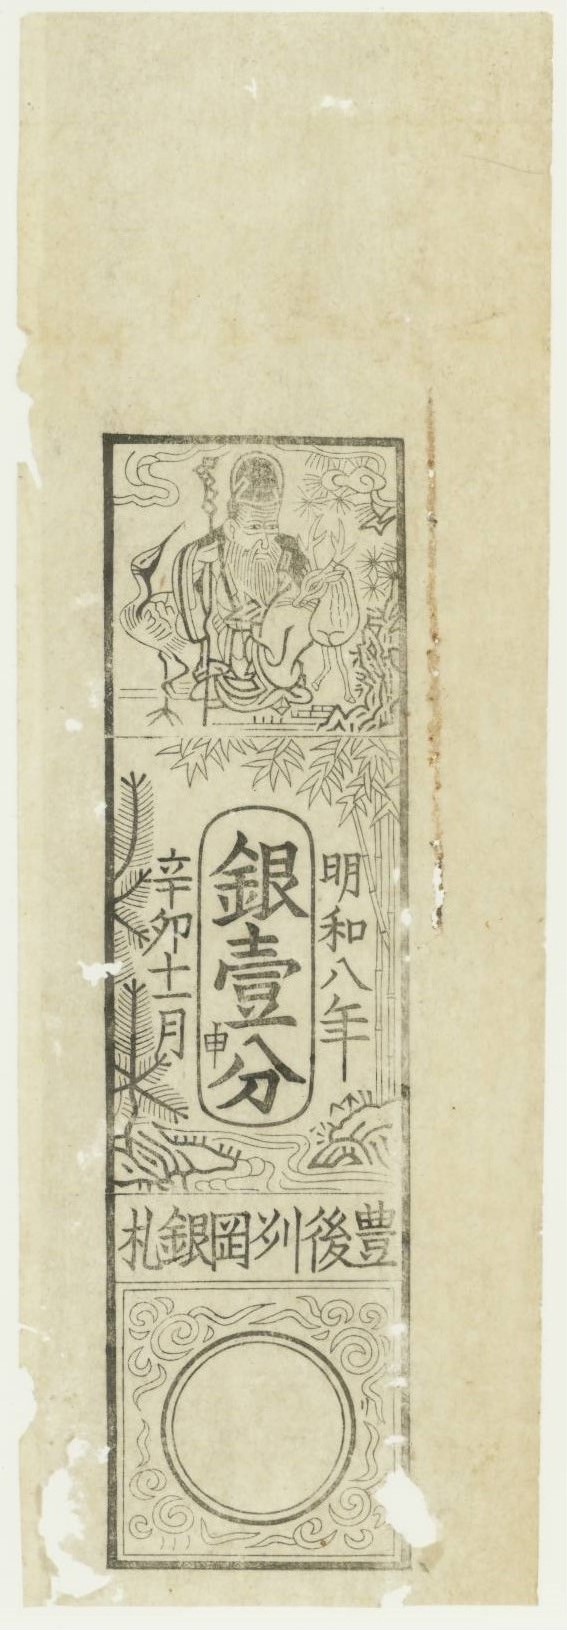 明和八年
銀壹分
申
辛卯十一月
豊後州岡銀札